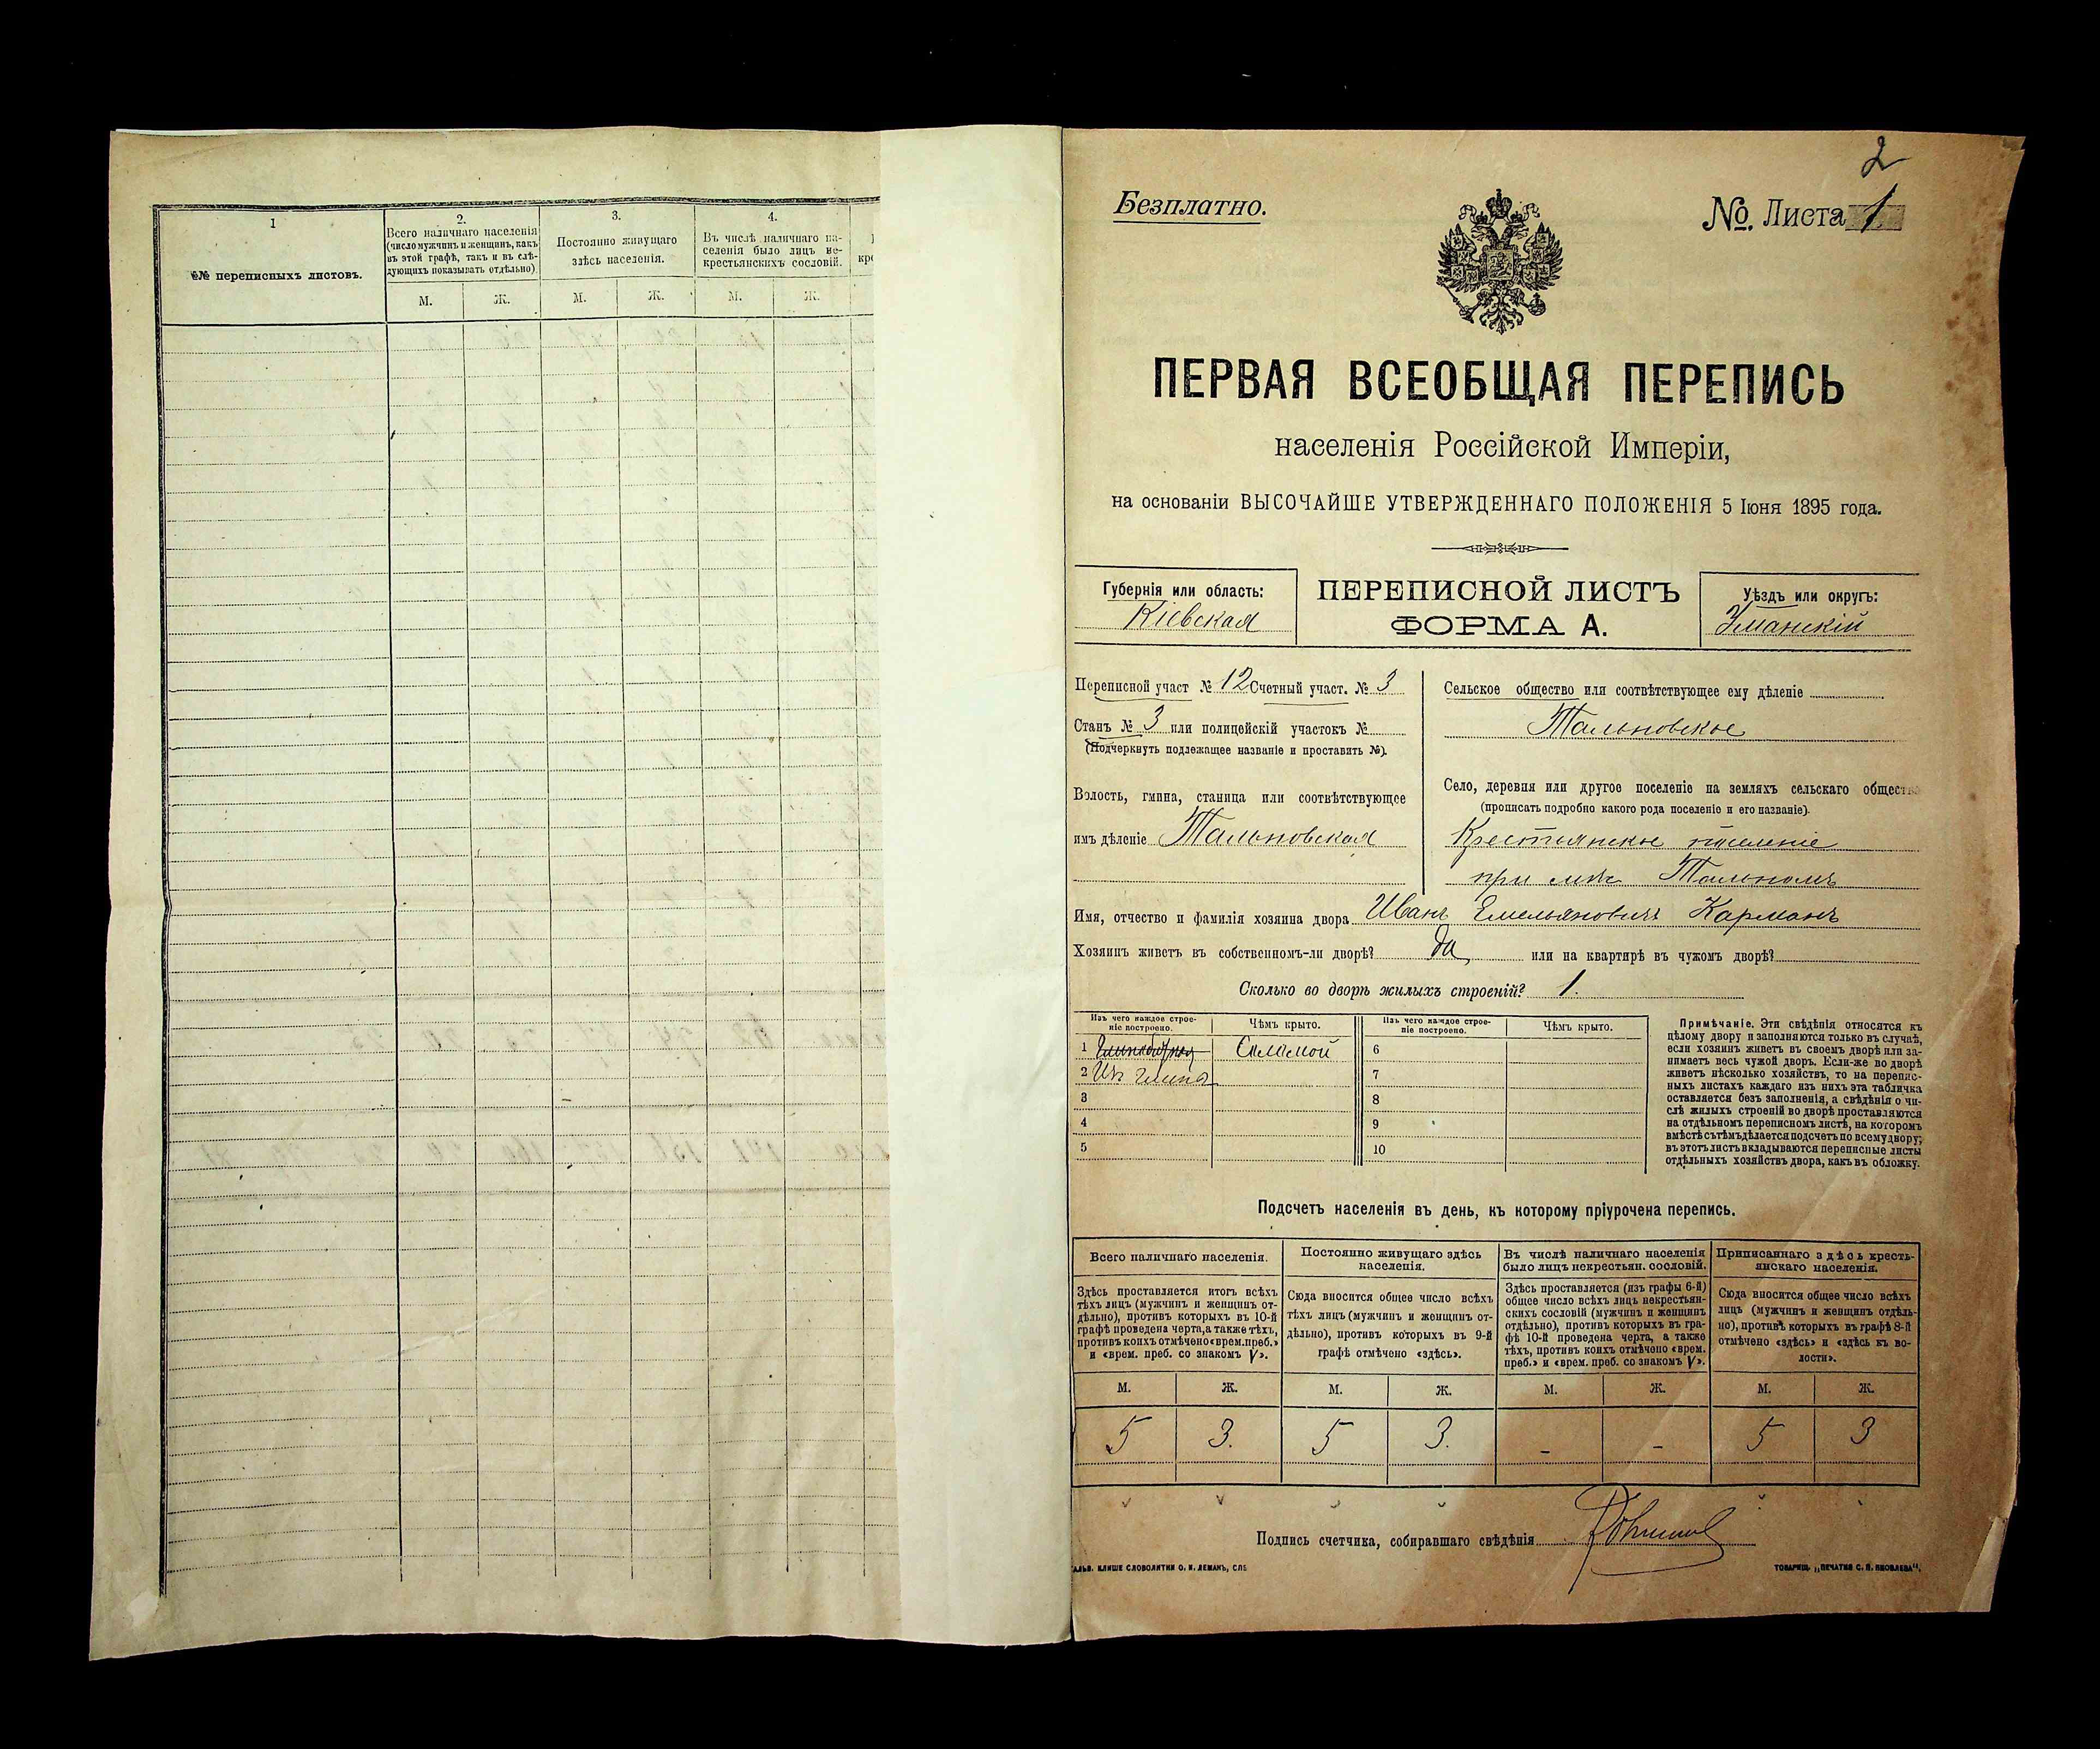 1
№№ переписныхъ листовъ.
2.
Всего наличнаго населенія
(число мужчинъ и женщинъ, какъ
въ этой графѣ, такъ и въ слѣ-
дующихъ показывать отдѣльно)
3.
Постоянно живущаго
здѣсь населенія.
4.
Въ числѣ наличнаго на-
селенія было лицъ не-
крестьянскихъ сословій.
М. Ж. М. Ж. М. Ж.
2
Безплатно.
№. Листа 1.
ПЕРВАЯ ВСЕОБЩАЯ ПЕРЕПИСЬ
населенія Россійской Имперіи,
на основаніи ВЫСОЧАЙШЕ УТВЕРЖДЕННАГО ПОЛОЖЕНІЯ 5 Іюня 1895 года.
Губернія или область:
Кіевская
ПЕРЕПИСНОЙ ЛИСТЪ
ФОРМА А.
Уѣздъ или округъ:
Уманскій
Переписной участ № 12 Счетный участ. № 3
Станъ № 3 или полицейскій участокъ №
(Подчеркнуть подлежащее названіе и проставить №).
Волость, гмина, станица или соотвѣтствующее
имъ дѣленіе Тальновская
Сельское общество или соотвѣтствующее ему дѣленіе
Тальновское
Село, деревня или другое поселеніе на земляхъ сельскаго общества
(прописать подробно какого рода поселеніе и его названіе).
Крестьянское поселеніе
при мѣс Тальномъ
Имя, отчество и фамилія хозяина двора Иванъ Емельяновичъ Карманъ
Хозяинъ живетъ въ собственномъ-ли дворѣ? да или на квартирѣ въ чужомъ дворѣ?
Сколько во дворѣ жилыхъ строеній? 1.
Изъ чего каждое строе-
ніе построено.
Чѣмъ крыто.
Изъ чего каждое строе-
ніе построено.
Чѣмъ крыто.
1 Соломой 6
2 Изъ глины 7
3 8
4 9
5 10
Примѣчаніе. Эти свѣдѣнія относятся къ
цѣлому двору и заполняются только въ случаѣ,
если хозяинъ живетъ въ своемъ дворѣ или за-
нимаетъ весь чужой дворъ. Если-же во дворѣ
живетъ нѣсколько хозяйствъ, то на перепис-
ныхъ листахъ каждаго изъ нихъ эта табличка
оставляется безъ заполненія, а свѣдѣнія о чи-
слѣ жилыхъ строеній во дворѣ проставляются
на отдѣльномъ переписномъ листѣ, на которомъ
вмѣстѣ съ тѣмъ дѣлается подсчетъ по всему двору;
въ этотъ листъ вкладываются переписные листы
отдѣльныхъ хозяйствъ двора, какъ въ обложку.
Подсчетъ населенія въ день, къ которому пріурочена перепись.
Всего наличнаго населенія.
Здѣсь проставляется итогъ всѣхъ
тѣхъ лицъ (мужчинъ и женщинъ от-
дѣльно), противъ которыхъ въ 10-й
графѣ проведена черта, а также тѣхъ,
противъ коихъ отмѣчено «врем. преб.»
и «врем. преб. со знакомъ V».
Постоянно живущаго здѣсь
населенія.
Сюда вносится общее число всѣхъ
тѣхъ лицъ (мужчинъ и женщинъ от-
дѣльно), противъ которыхъ въ 9-й
графѣ отмѣчено «здѣсь».
Въ числѣ наличнаго населенія
было лицъ некрестьян. сословій.
Здѣсь проставляется (изъ графы 6-й)
общее число всѣхъ лицъ некрестьян-
скихъ сословій (мужчинъ и женщинъ
отдѣльно), противъ которыхъ въ гра-
фѣ 10-й проведена черта, а также
тѣхъ, противъ коихъ отмѣчено «врем.
преб.» и «врем. преб. со знакомъ V».
Приписаннаго здѣсь кресть-
янскаго населенія.
Сюда вносится общее число всѣхъ
лицъ (мужчинъ и женщинъ отдѣль-
но), противъ которыхъ въ графѣ 8-й
отмѣчено «здѣсь» и «здѣсь къ во-
лости».
М. Ж. М. Ж. М. Ж. М. Ж.
5 3. 5 3. - - 5 3
Подпись счетчика, собиравшаго свѣдѣнія
КЛИШЕ СЛОВОЛИТНИ О. И. ЛЕМАНЪ, СПБ
ТОВАРИЩ. „ПЕЧАТНЯ С. П. ЯКОВЛЕВА".